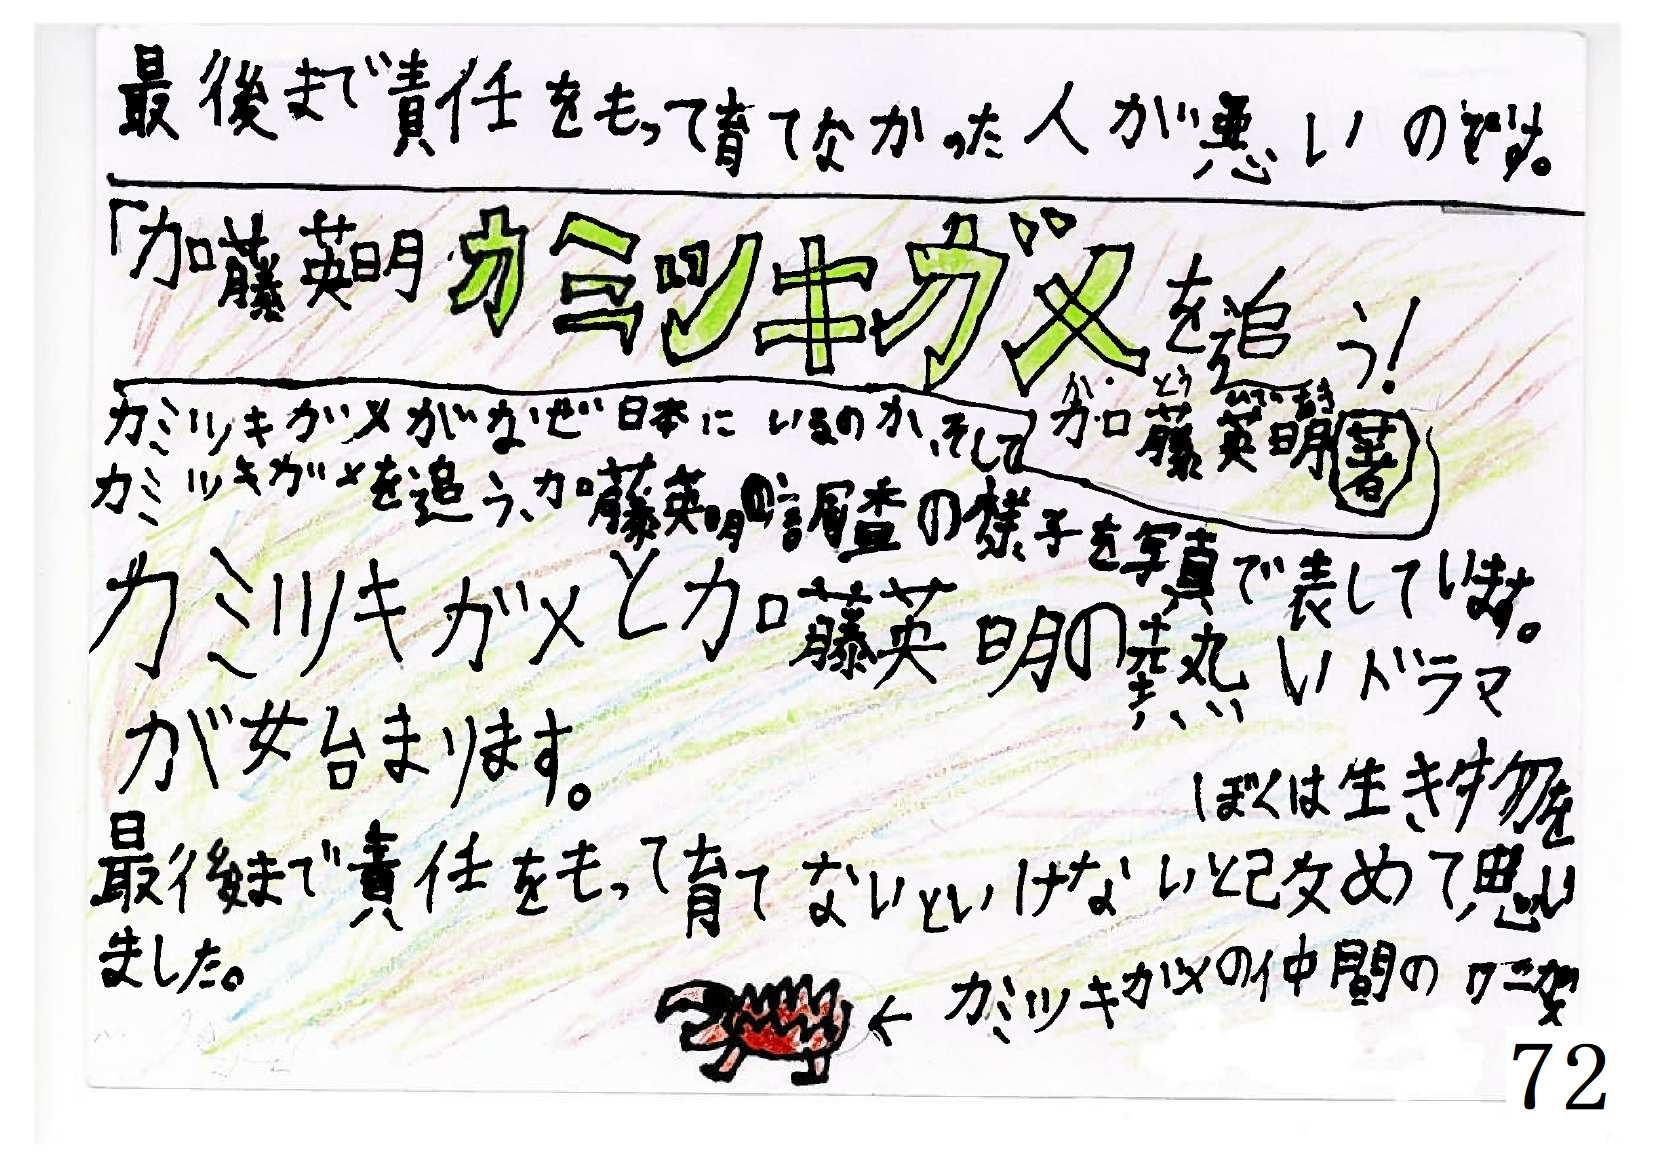 最後まで責任をもって育てなかった人が悪いのです。
「加藤英明カミツキガメを追う!
か とう ひであき
加藤英明著
カミツキガメがなぜ日本にいるのか、そして
カミツキガメを追う、加藤英明の調査の様子を写真で表しています。
カミツキガメと加藤英明の熱いドラマ
が始まります。
ぼくは生き物を
最後まで責任をもって育てないといけないと改めて思い
ました。
←カミツキガメの仲間のワニガメ
72